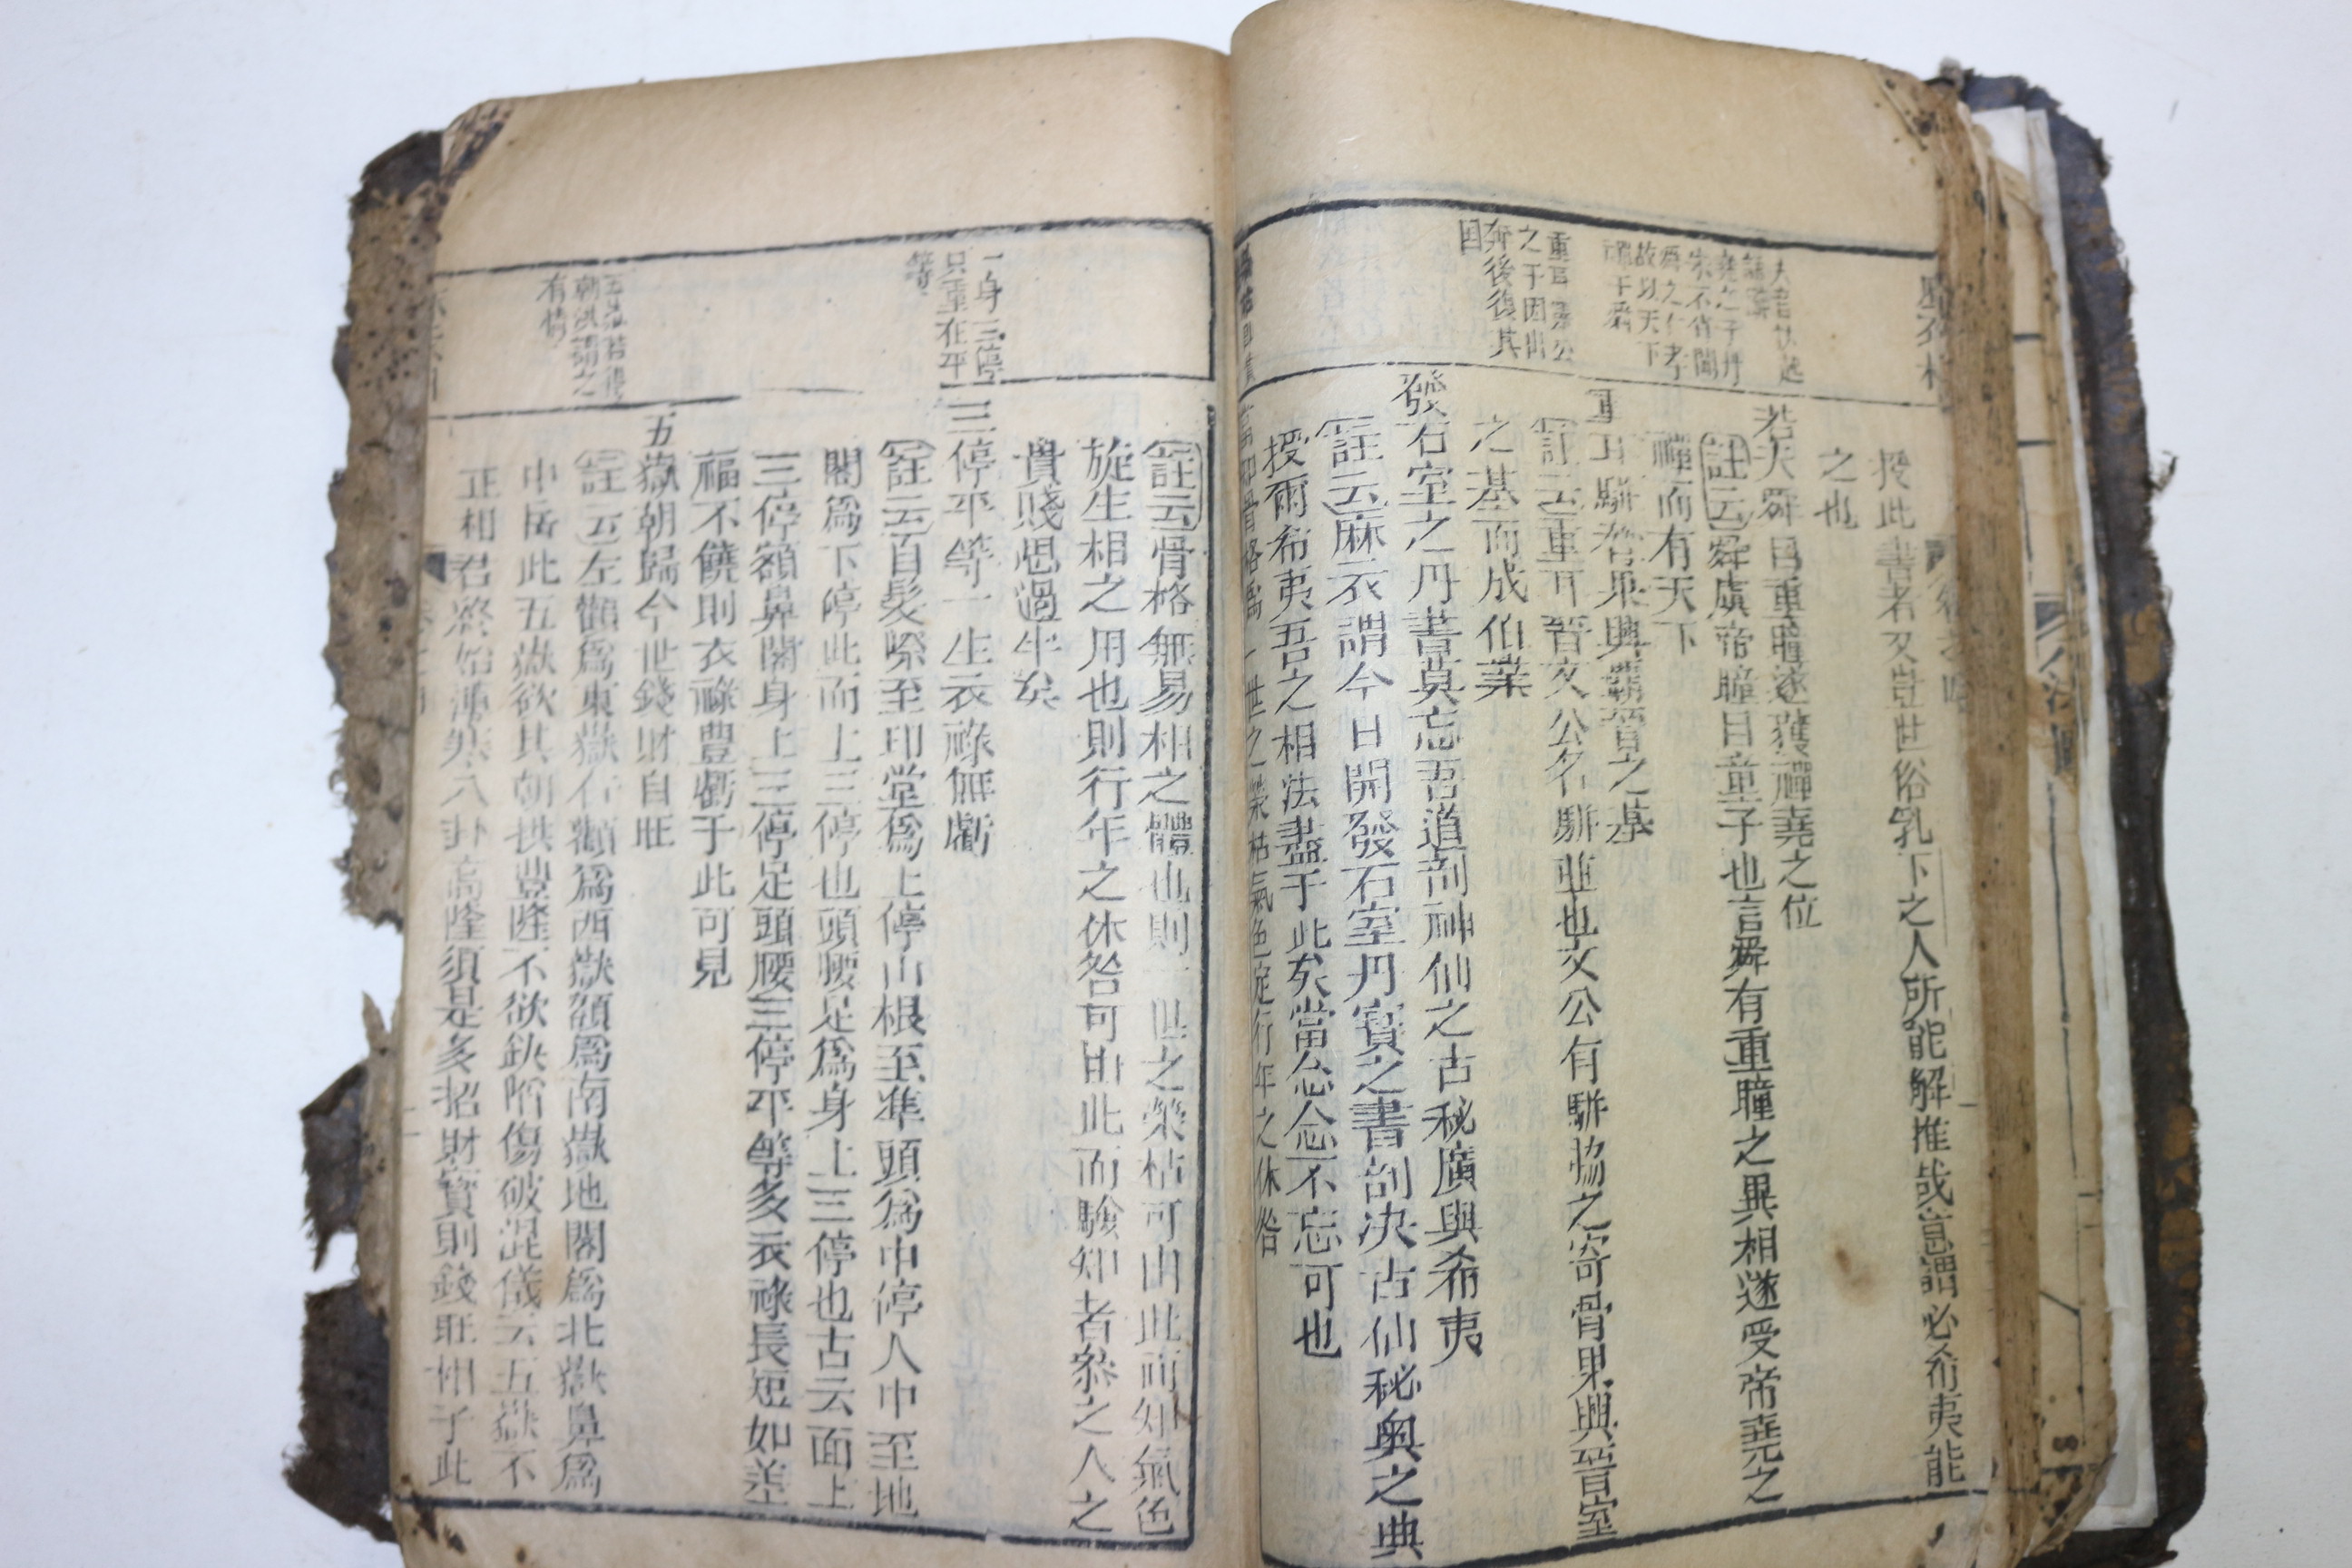 授此書者又豈世俗乳下之人所能解推哉豈謂必希夷能
之也
若大舜目重瞳遂獲禪堯之位
註云舜虞帝瞳目童子也言舜有重瞳之異相遂受帝堯之
禪而有天下
重耳駢脅果興霸晉之基
註云重耳晉文公名駢並也文公有駢脇之奇骨果興晉室
之基而成伯業
發石室之丹書莫忘吾道剖神仙之古秘廣與希夷
註云麻衣謂今日開發石室丹寶之書剖決古仙秘奧之典
授爾希夷吾之相法盡于此矣當念念不忘可也
骨格爲一世之榮枯氣色定行年之休咎
重耳
之子因出
奔後復其
国
堯之子丹
朱不肖聞
舜之仁孝
故以天下
禪于舜
註云骨格無易相之體也則一世之榮枯可由此而知氣色
旋生相之用也則行年之休咎可由此而驗知者參之人之
貴賤思過半矣
三停平等一生衣祿無虧
註云自髮際至印堂爲上停山根至準頭爲中停人中至地
閣爲下停此面上三停也頭腰足爲身上三停也古云面上
三停額鼻閣身上三停足頭腰三停平等多衣祿長短如差
福不饒則衣祿豊虧于此可見
五嶽朝歸今世錢財自旺
註云左顴爲東嶽右顴爲西嶽額爲南嶽地閣爲北嶽鼻爲
中岳此五嶽欲其朝拱豊隆不欲缺陷傷破混儀云五嶽不
正相君終始薄寒八卦高隆須是多招財寳則錢旺相予此
一身三停
只重在平
等
朝洪謂之
有情